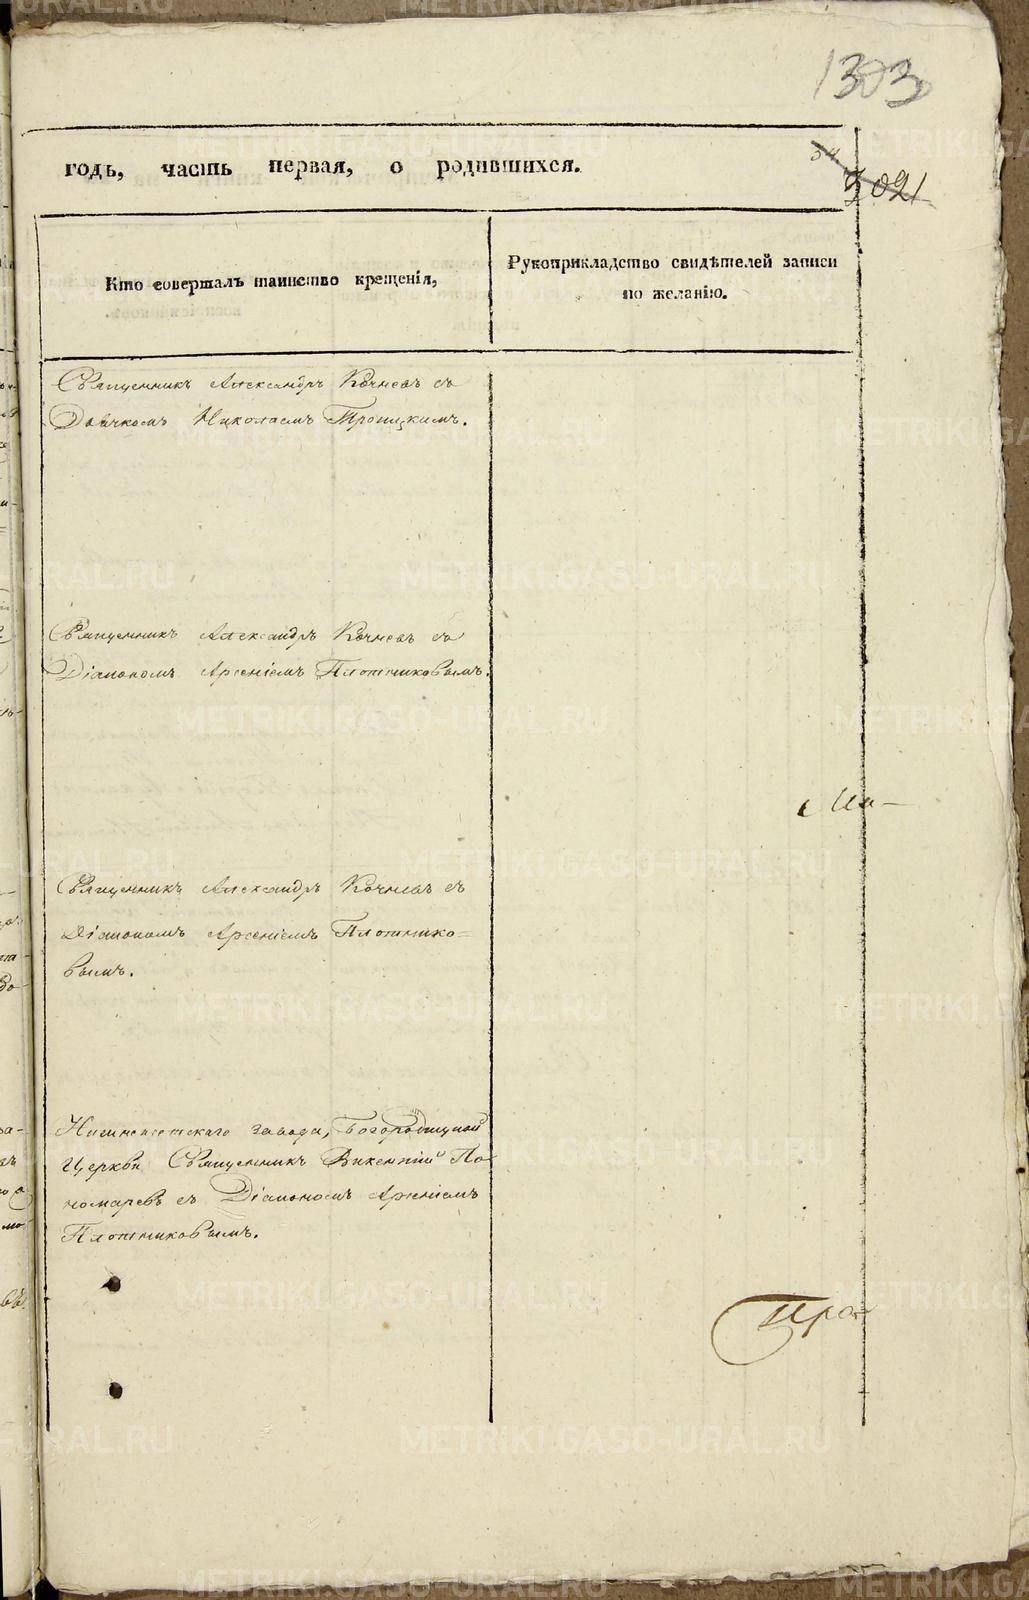 1303
годъ, часть первая, о родившихся.
54
5021
Кто совершалъ таинство крещенія,
Рукоприкладство свидѣтелей записи
по желанію.
Священникъ Александръ Кочневъ съ
Дьячкомъ Николаемъ Троицкимъ.
Священникъ Александръ Кочневъ съ
Діакономъ Арсеніемъ Плотниковымъ.
Священникъ Александръ Кочневъ съ
Діакономъ Арсеніемъ Плотнико=
вымъ.
Нижнеисетскаго завода, Богородицкой
Церкви Священникъ Викентій По
номаревъ съ Діакономъ Арсеніемъ
Плотниковымъ.
METRIKI.GASO-URAL.RU